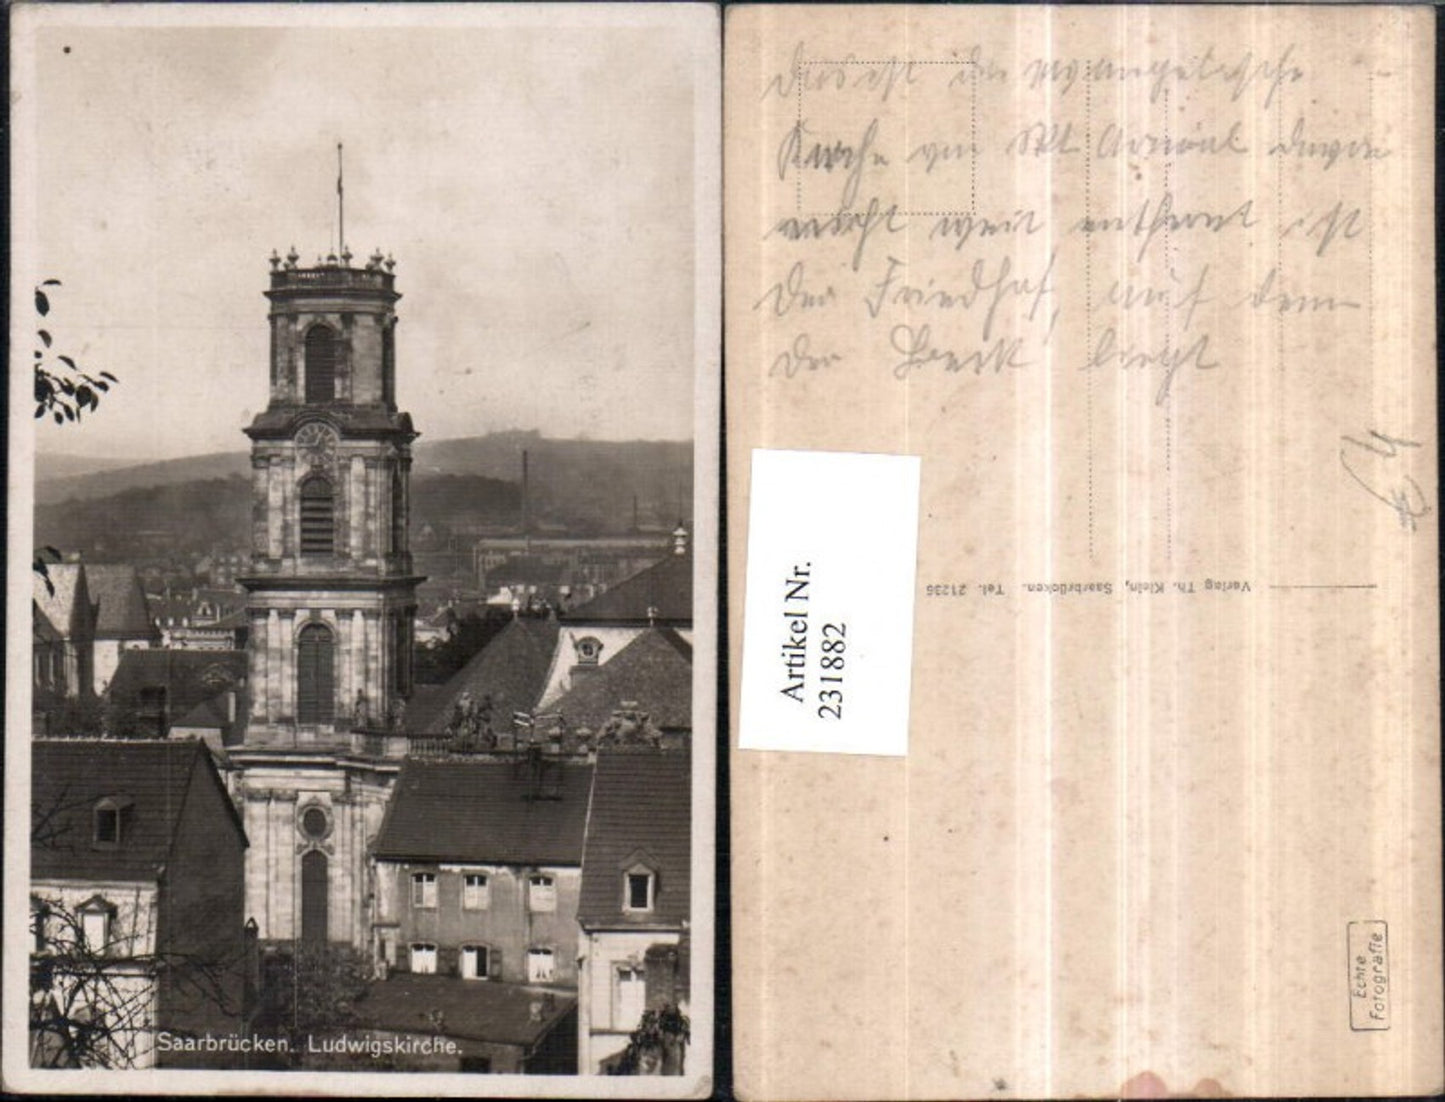 Saarbrücken. Ludwigskirche.
Das ist die evangelische
Kirche von Skt Arnual davon
nicht weit entfernt ist
der Friedhof, auf dem
der Beck liegt
Artikel Nr.
231882
Verlag Th. Klein, Saarbrücken. Tel. 21236
Echte
Fotografie